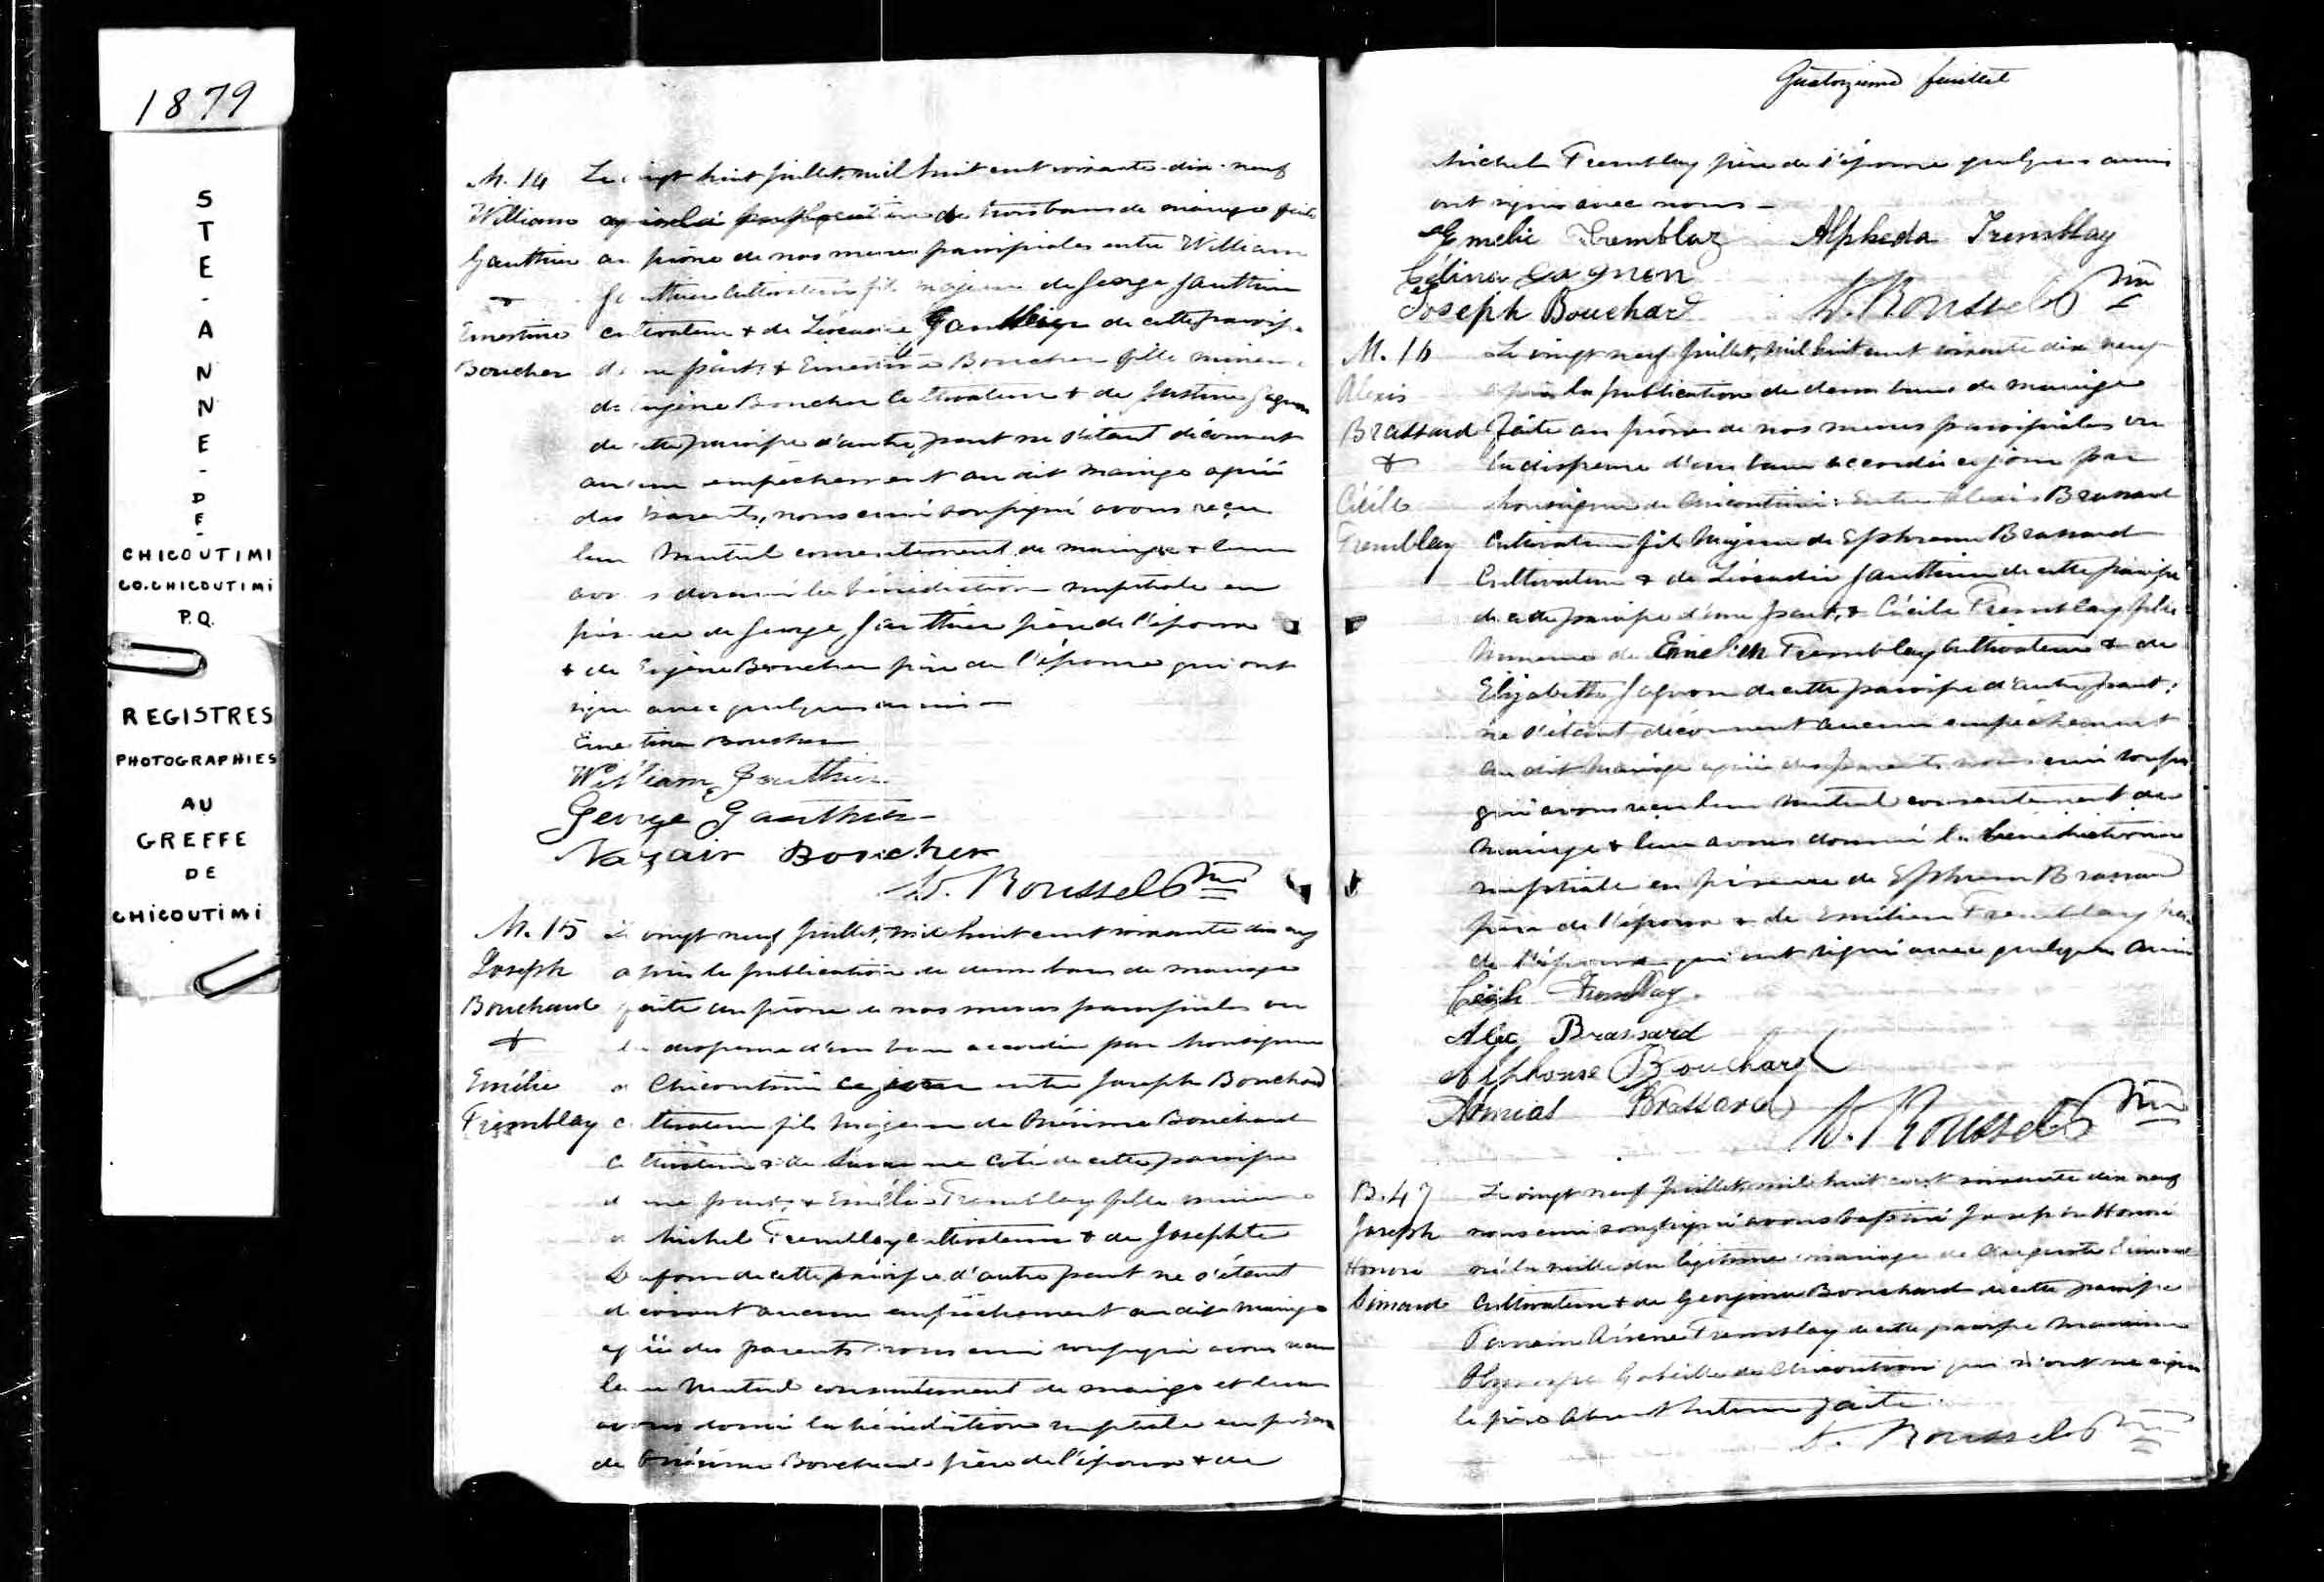 1879
STE-ANNE-DE-
CHICOUTIMI
CO. CHICOUTIMI
P.Q.
REGISTRES
PHOTOGRAPHIES
AU
GREFFE
DE
CHICOUTIMI
M. 14
William
Gauthier
+
Ernestine
Boucher
Le vingt huit Juillet, mil huit cent soixante-dix-neuf
après la publication de trois bans de mariage faite
au prône de nos messes paroissiales entre William
Gauthier Cultivateur fils majeur de George Gauthier
cultivateur + de Léocadie Gauthier de cette paroisse
d'une part, + Ernestine Boucher fille mineure
de Eugène Boucher Cultivateur + de Justine Gagnon
de cette paroisse d'autre part ne s'étant découvert
aucun empêchement au dit mariage après
des parents, nous curé soussigné avons reçu
leur mutuel consentement de mariage + leur
avons donné la bénédiction nuptiale en
présence de George Gauthier père de l'époux
+ de Eugène Boucher père de l'épouse qui ont
signé avec quelques amis —
Ernestine Boucher
William Gauthier
George Gauthier
Nazair Boucher
D. Roussel Ptre
M. 15
Joseph
Bouchard
+
Emélie
Tremblay
Le vingt neuf Juillet, mil huit cent soixante dix neuf
après la publication de deux bans de mariage
faite au prône de nos messes paroissiales vu
la dispense d'un ban accordée par Monseigneur
de Chicoutimi ce jour entre Joseph Bouchard
cultivateur fils majeur de Onésime Bouchard
cultivateur + de Suzanne Coté de cette paroisse
d'une part, + Emélie Tremblay fille mineure
de Michel Tremblay cultivateur + de Josephte
de cette paroisse d'autre part ne s'étant
découvert aucun empêchement au dit mariage
des parents nous curé soussigné avons reçu
leur mutuel consentement de mariage et leur
avons donné la bénédiction nuptiale en présence
de Onésime Bouchard père de l'époux + de
Quatorzième feuillet
Michel Tremblay père de l'épouse quelques amis
ont signé avec nous —
Emelie Tremblay Alpheda Tremblay
Célina Gagnon
Joseph Bouchard D. Roussel Ptre
M. 16
Alexis
Brassard
+
Cécile
Tremblay
Le vingt neuf Juillet, mil huit cent soixante dix neuf
après la publication de deux bans de mariage
faite au prône de nos messes paroissiales vu
la dispense d'un ban accordée ce jour par
Monseigneur de Chicoutimi: Entre Alexis Brassard
Cultivateur fils Majeur de Ephrem Brassard
Cultivateur + de Léocadie Gauthier de cette paroisse
de cette paroisse d'une part, + Cécile Tremblay fille
Mineure de Emélien Tremblay Cultivateur + de
Elizabeth Gagnon de cette paroisse d'autre part;
ne s'étant découvert aucun empêchement
au dit Mariage des parents nous curé soussi
gné avons reçu leur mutuel consentement de
mariage + leur avons donné la bénédiction
nuptiale en présence de Ephrem Brassard
père de l'époux + de Emilien Tremblay père
de l'épouse qui ont signé avec quelques amis
Cécile Tremblay
Alec Brassard
Alphonse Bouchard
Brassard D. Roussel Ptre
B. 47
Joseph
Honoré
Simard
Le vingt neuf Juillet, mil huit cent soixante dix neuf
nous curé soussigné avons baptisé Joseph Honoré
né la veille du légitime mariage de Auguste Simard
Cultivateur + de Georgina Bouchard de cette paroisse
Parrain Tremblay de cette paroisse Marraine
de Chicoutimi qui n'ont su signer
le père absent lecture faite
D. Roussel Ptre